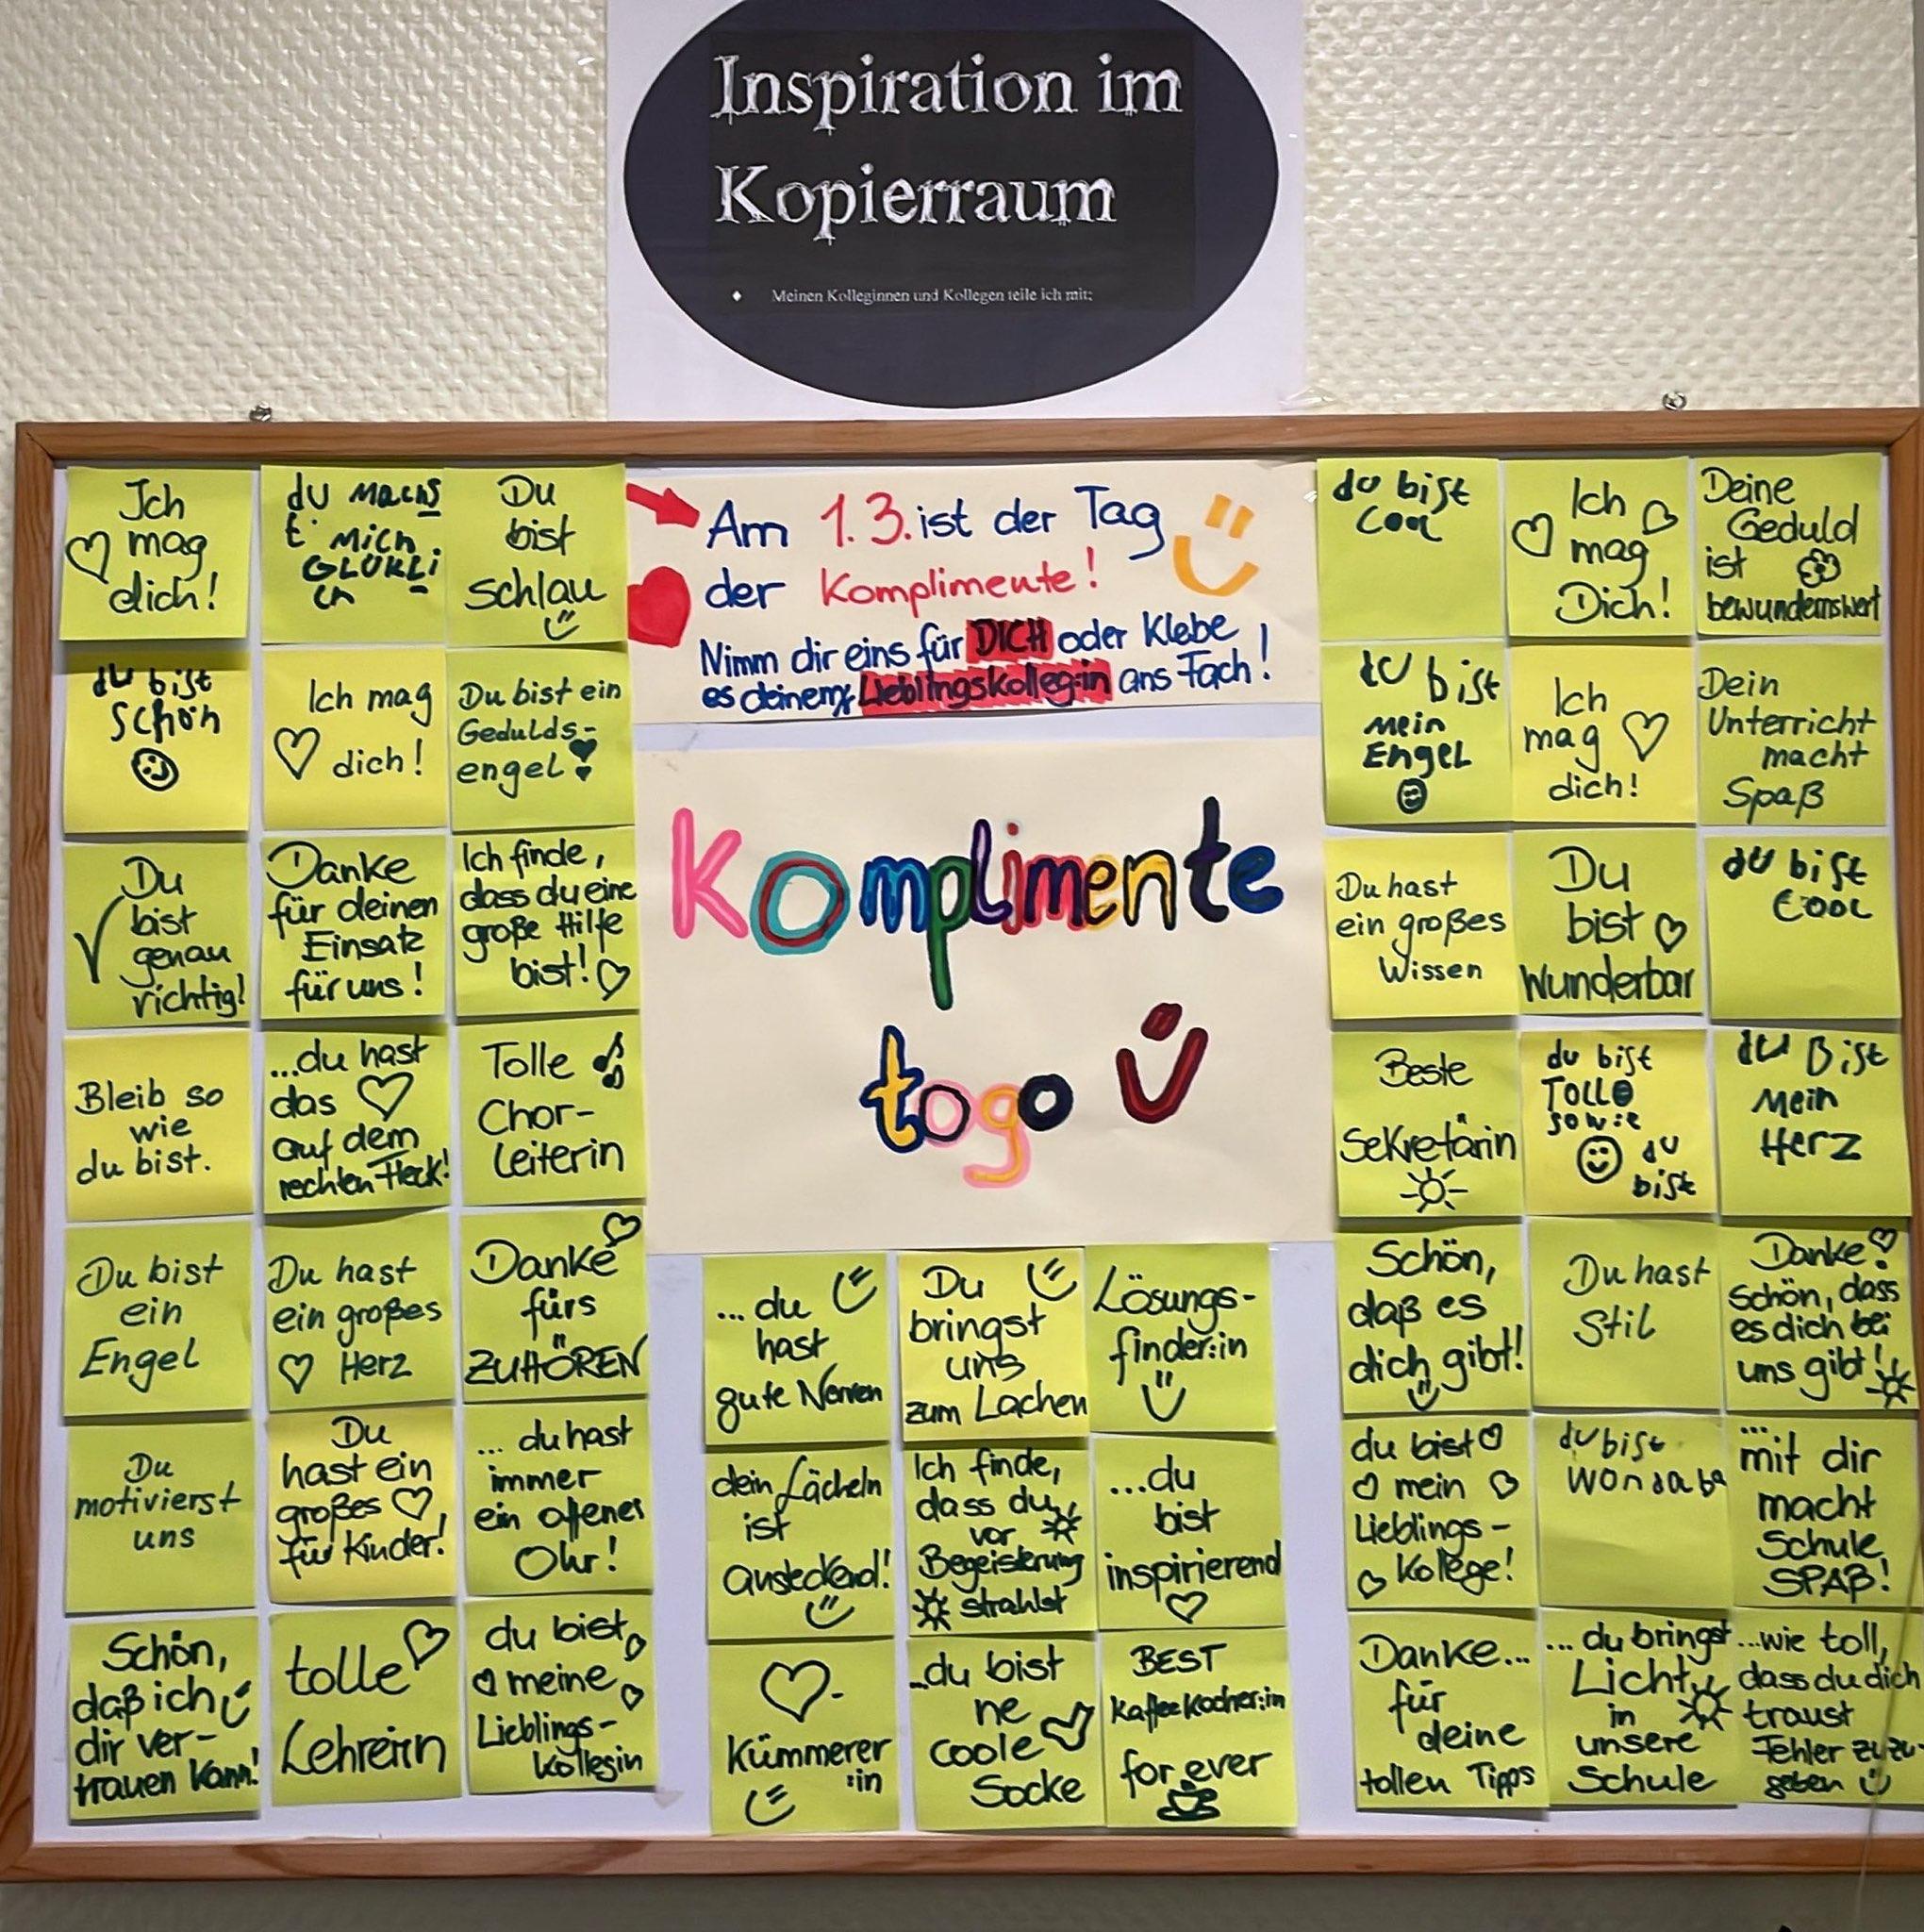 Inspiration im
Kopierraum
Meinen Kolleginnen und Kollegen teile ich mit:
Am 1.3. ist der Tag
der Komplimente!
Nimm dir eins für DICH oder klebe
es deinem Lieblingskolleg:in ans Fach!
Komplimente
togo
Ich
mag
dich!
du machs
t mich
GLÜKLi
ch
Du
bist
schlau
du bist
schön
Ich mag
dich!
Du bist ein
Gedulds-
engel
Du
bist
genau
richtig!
Danke
für deinen
Einsatz
für uns!
Ich finde,
dass du eine
große Hilfe
bist!
Bleib so
wie
du bist.
...du hast
das
auf dem
rechten Fleck!
Tolle
Chor-
leiterin
Du bist
ein
Engel
Du hast
ein großes
Herz
Danke
fürs
ZUHÖREN
Du
motivierst
uns
Du
hast ein
großes
für Kinder!
... du hast
immer
ein offenes
Ohr!
Schön,
daß ich
dir ver-
trauen kann!
tolle
Lehrerin
du bist
meine
Lieblings-
kollegin
...du
hast
gute Nerven
Du
bringst
uns
zum Lachen
Lösungs-
finder:in
dein Lächeln
ist
ansteckend!
Ich finde,
dass du
vor
Begeisterung
strahlst
...du
bist
inspirierend
Kümmerer
:in
..du bist
ne
coole
Socke
BEST
Kaffeekocher:in
for ever
du bist
cool
Ich
mag
Dich!
Deine
Geduld
ist
bewundernswert
du bist
mein
Engel
Ich
mag
dich!
Dein
Unterricht
macht
Spaß
Du hast
ein großes
Wissen
Du
bist
Wunderbar
du bist
cool
Beste
Sekretärin
du bist
TOLLe
sowie
du
bist
du Bist
mein
Herz
Schön,
daß es
dich gibt!
Du hast
Stil
Danke!
Schön, dass
es dich bei
uns gibt!
du bist
mein
Lieblings-
Kollege!
du bist
wondaba
...mit dir
macht
Schule
SPAß!
Danke...
für
deine
tollen Tipps
...du bringst
Licht
in
unsere
Schule
...wie toll,
dass du dich
traust
Fehler zuzu-
geben